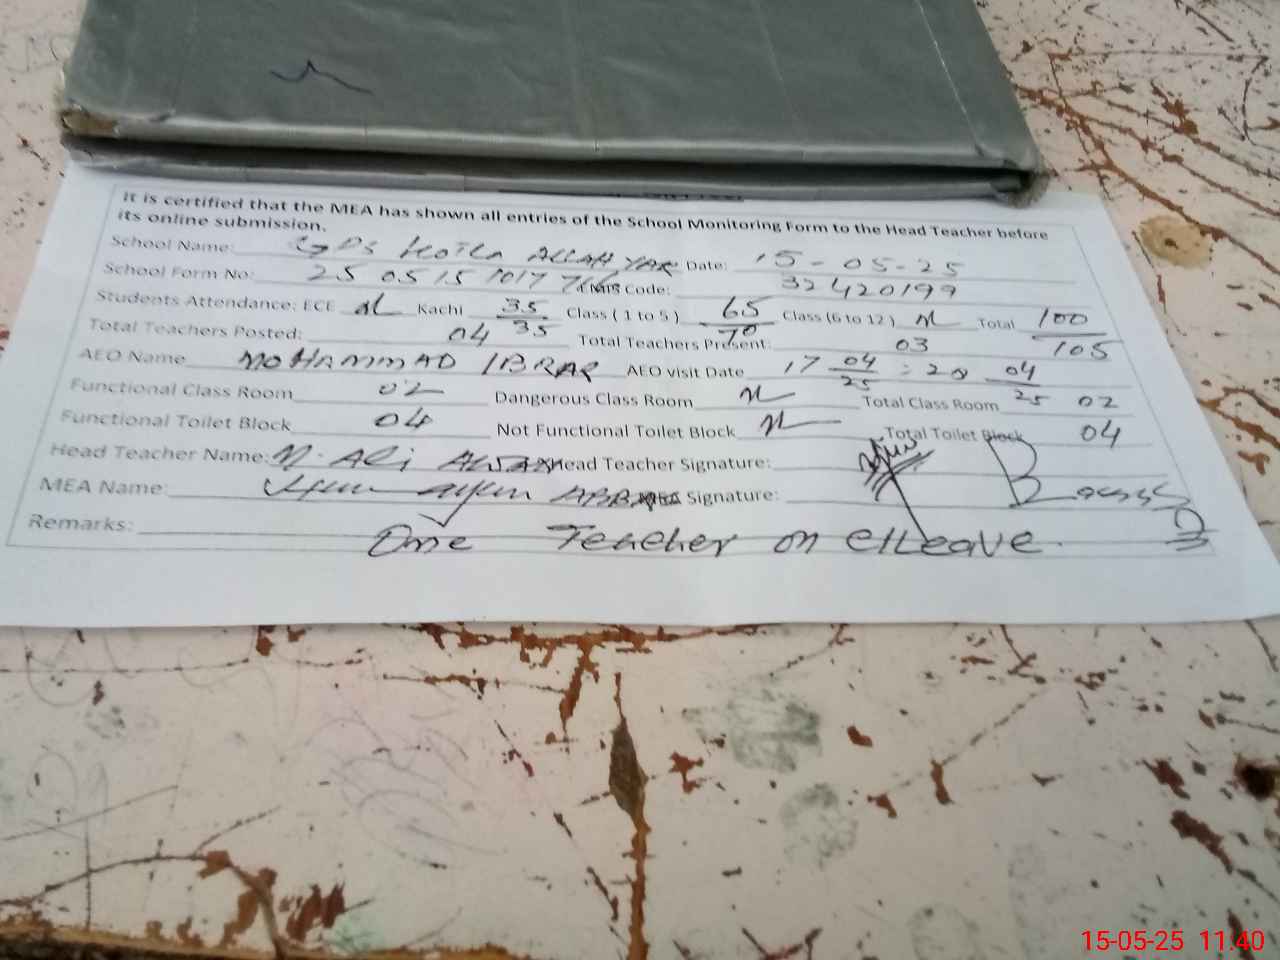 It is certified that the MEA has shown all entries of the School Monitoring Form to the Head Teacher before
its online submission.
School Name: GPS ALLAH YAR Date: 15-05-25
School Form No: 25 05 15 1017 Code: 32420199
Students Attendance: ECE Kachi 35/35 Class ( 1 to 5 ) 65/70 Class (6 to 12 ) Total 100/105
Total Teachers Posted: 04 Total Teachers Present: 03
AEO Name MOHAMMAD IBRAR AEO visit Date 17 04/25 : 28 04/25
Functional Class Room 02 Dangerous Class Room Total Class Room 02
Functional Toilet Block 04 Not Functional Toilet Block Total Toilet Block 04
Head Teacher Name: M. Ali Head Teacher Signature:
MEA Name: Signature:
Remarks: One Teacher on C/Leave.
15-05-25 11:40